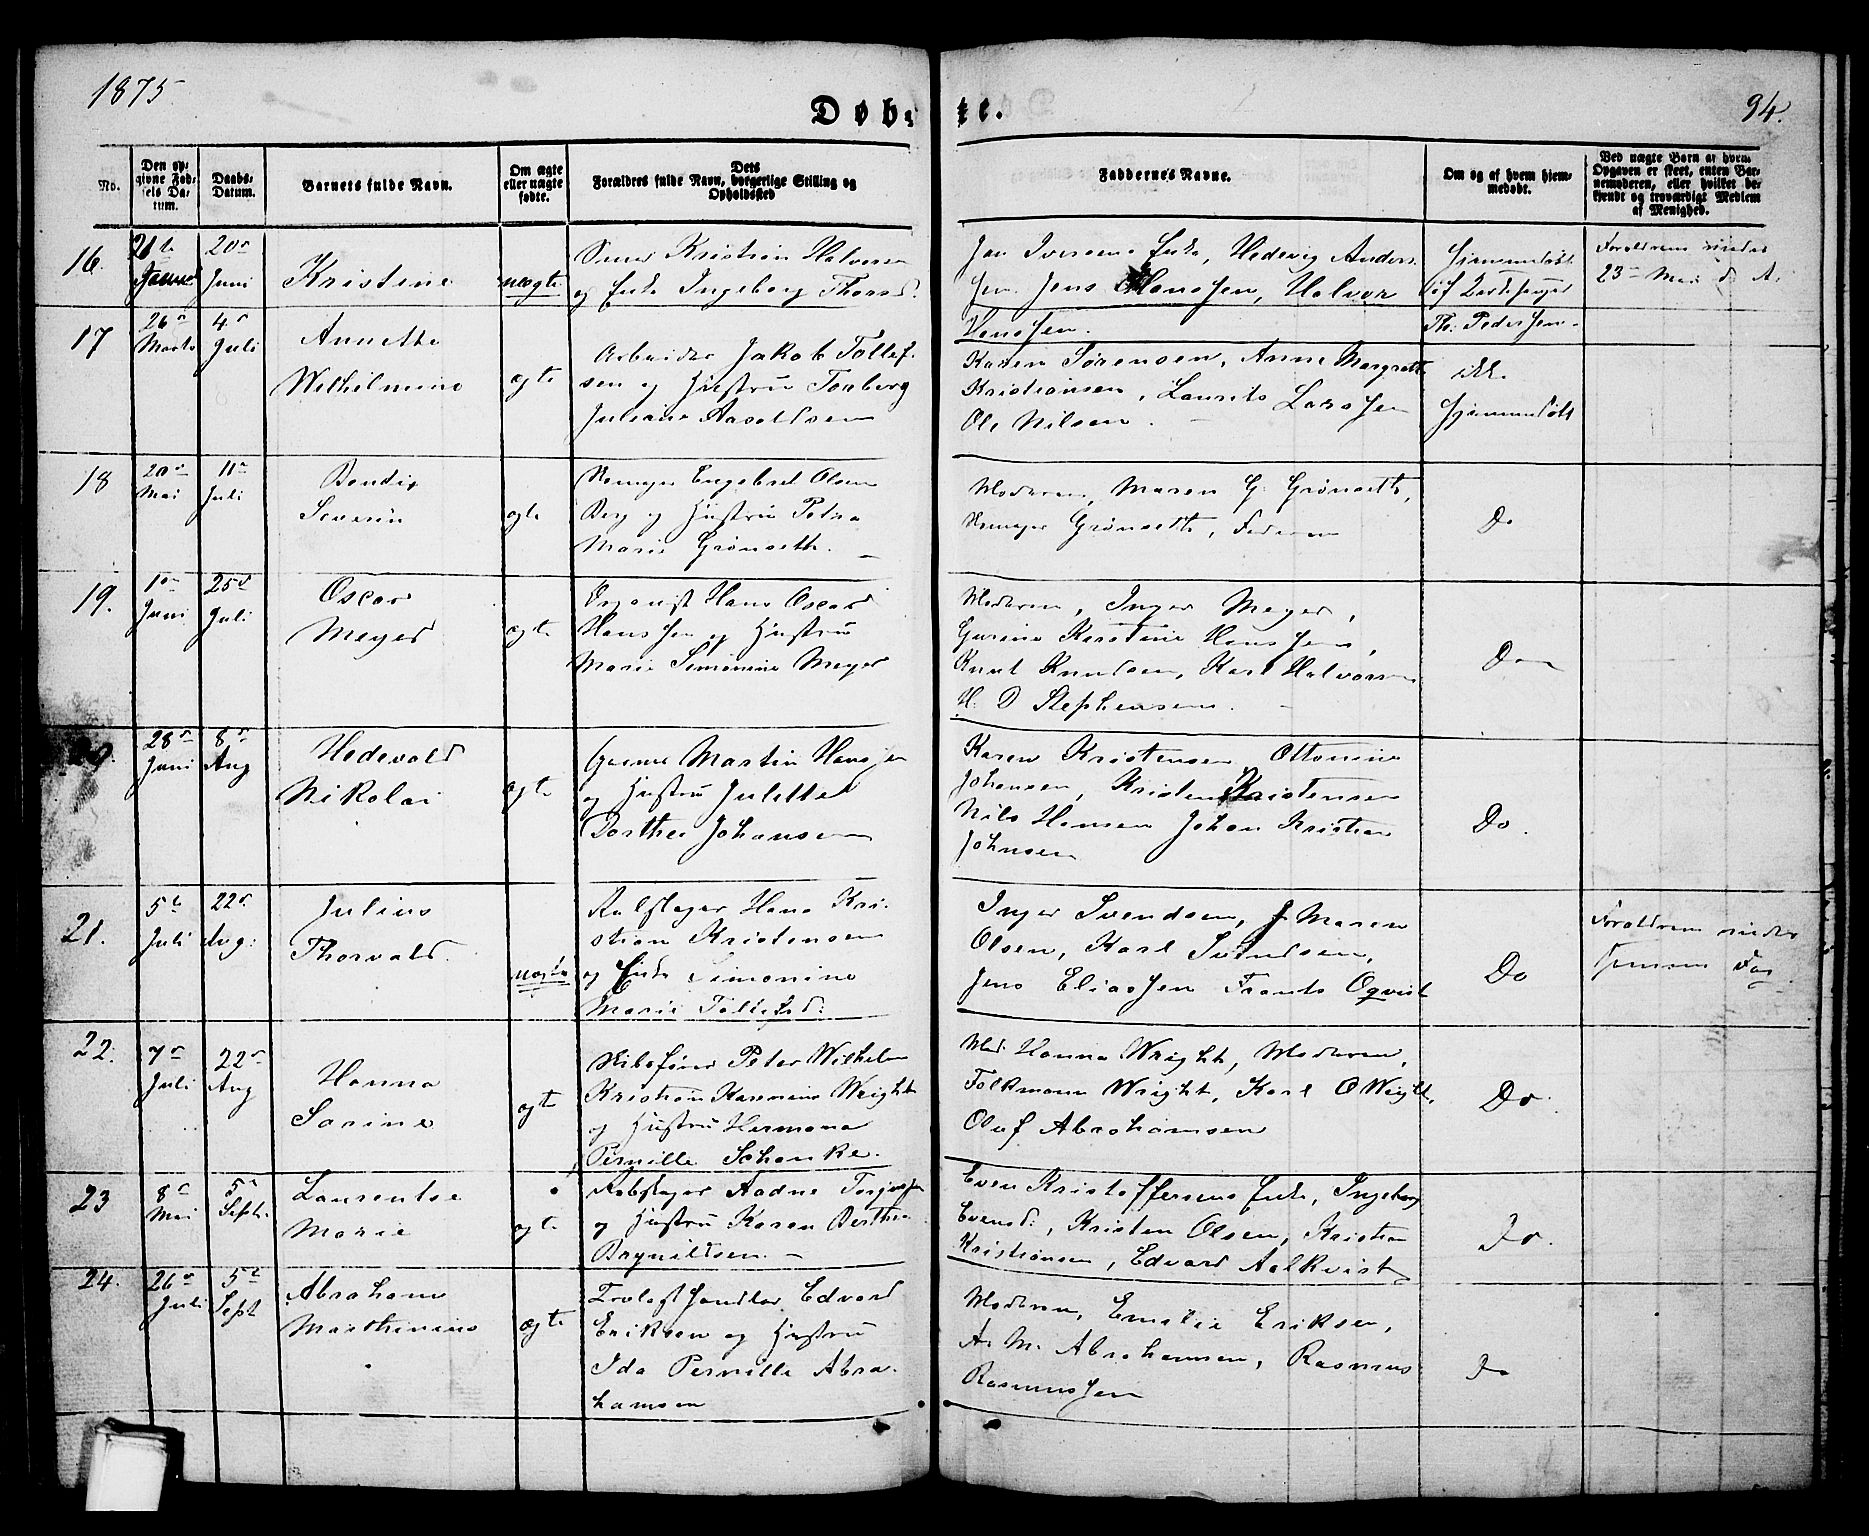 1875.
Døbte.
94.
No.
Den opgivne Fødsels Datum.
Daabs-Datum.
Barnets fulde Navn.
Om ægte eller uægte fødte.
Dets Forældres fulde Navn, borgerlige Stilling og Opholdssted
Faddernes Navne.
Om og af hvem hjemmedøbt.
Ved uægte Børn af hvem Opgaven er skeet, enten Barnemoderen, eller hvilket bekjendt og troværdigt Medlem af Menighed.
16.
21de
20de
Juni
Kristine
uægte
Kristian Halvorsen
og Enke Ingeborg Thorsd.
Jan Iversens Enke, Hedevig Ander-
sen. Jens Hansen, Halvor
Hansen.
Hjemmedøbt
af
Th: Pedersen
Forældrene
23de Mai d. A.
17
26de
Marts
4de
Juli
Annette
Wilhelmine
ægte
Arbeider Jakob Tollef-
sen og Hustru Torberg
Juliane Aasoldsen
Karen Sørensen, Anne Margrethe
Kristiansen, Laurits Larssen
Ole Nilsen.
ikke
hjemmedøbt
18
20de
Mai
11te
Juli
Bendix
Severin
ægte
Engebret Olsen
Berg og Hustru Petra
Marie Grønseth.
Moderen, Maren G. Grønseth,
Grønseth, Faderen
Do
19.
1ste
Juni
25de
Juli
Oscar
Meyer
ægte
Organist Hans Oscar
Hanssen og Hustru
Marie Simonine Meyer
Moderen, Inger Meyer,
Gurine Karstine Hanssen,
Knut Knudsen, Karl Halvorsen
H. D Stephensen.
Do
20.
28de
Juni
8de
Aug
Hedevald
Nikolai
ægte
Martin Hanssen
og Hustru Julette
Dorthea Johansen
Karen Kristensen Ottomine
Johansen, Kristen Kristensen
Nils Hansen Johan Kristian
Johnsen
Do.
21.
5te
Juli
22de
Aug:
Julius
Thorvald.
uægte
Hans Kri-
stian Kristensen
og Enke Simonine
Marie Tollefsd:
Inger Svendsen, Maren
Olsen, Karl Svendsen,
Jens Eliassen Frants Oqvist
Do
Forældrene
22.
7de
Juli
22de
Aug
Hanna
Sarine
ægte
Skibsfører Peter Wilhelm
Kristian Rasmus Wright
og Hustru Hermana
Pernille Schanke.
Md. Hanna Wright, Moderen,
Folkmann Wright, Karl O Wright.
Oluf Abrahamsen
Do.
23
8de
Mai
5te
Sept.
Laurentse
Marie
ægte
Aadne Torjussen
og Hustru Karen Berthea
Brynildsen.
Even Kristoffersens Enke, Ingeborg
Evensd:, Kristen Olsen, Kristian
Kristiansen, Edvard Aalkvist
Do.
24.
26de
Juli
5te
Sept
Abraham
Marthinius
ægte
Trælasthandler Edvard
Eriksen og Hustru
Ida Pernille Abra-
hamsen
Moderen, Emilie Eriksen,
A. M. Abrahamsen, Rasmus
Rasmussen
Do